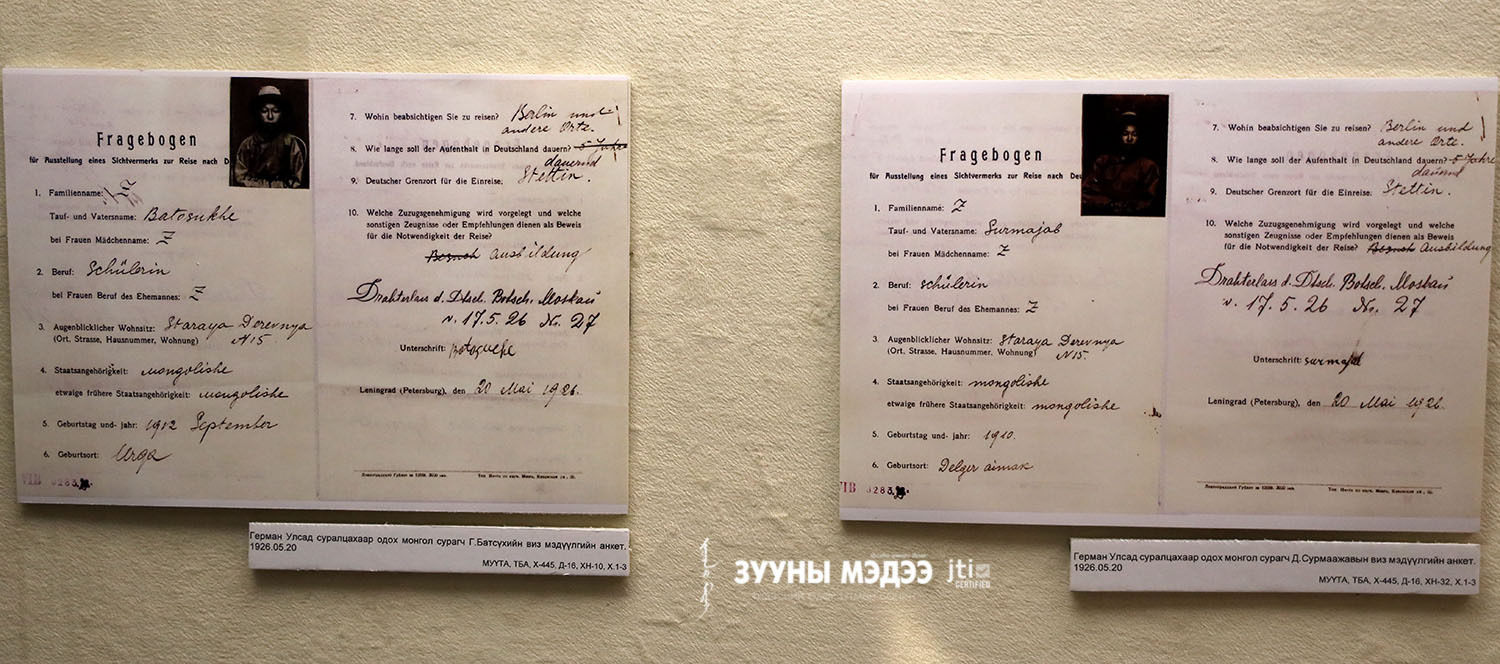 Fragebogen
für Ausstellung eines Sichtvermerks zur Reise nach D
1. Familienname:
Tauf- und Vatersname: Batosukhe
bei Frauen Mädchenname: Z
2. Beruf: Schülerin
bei Frauen Beruf des Ehemannes: Z
3. Augenblicklicher Wohnsitz: Staraya Derevnya
(Ort, Strasse, Hausnummer, Wohnung) N15
4. Staatsangehörigkeit: mongolishe
etwaige frühere Staatsangehörigkeit: mongolishe
5. Geburtstag und- jahr: 1912 September
6. Geburtsort: Urga
VIB 0283
7. Wohin beabsichtigen Sie zu reisen? Berlin und
andere Orte.
8. Wie lange soll der Aufenthalt in Deutschland dauern? 5 Jahre
dauernd
9. Deutscher Grenzort für die Einreise: Stettin.
10. Welche Zuzugsgenehmigung wird vorgelegt und welche
sonstigen Zeugnisse oder Empfehlungen dienen als Beweis
für die Notwendigkeit der Reise?
Ausbildung
Drahterlass d. Dtsch. Botsch. Moskau
v. 17.5.26 No. 27
Unterschrift:
Leningrad (Petersburg), den 20 Mai 1926.
Герман Улсад суралцахаар одох монгол сурагч Г.Батсүхийн виз мэдүүлгийн анкет.
1926.05.20
МУУТА, ТБА, Х-445, Д-16, ХН-10, Х.1-3
Fragebogen
für Ausstellung eines Sichtvermerks zur Reise nach De
1. Familienname: Z
Tauf- und Vatersname: Surmajab
bei Frauen Mädchenname: Z
2. Beruf: schülerin
bei Frauen Beruf des Ehemannes: Z
3. Augenblicklicher Wohnsitz: Staraya Derevnya
(Ort, Strasse, Hausnummer, Wohnung) N15.
4. Staatsangehörigkeit: mongolishe
etwaige frühere Staatsangehörigkeit: mongolishe
5. Geburtstag und- jahr: 1910.
6. Geburtsort: Delger aimak
VIB 0283
7. Wohin beabsichtigen Sie zu reisen? Berlin und
andere Orte.
8. Wie lange soll der Aufenthalt in Deutschland dauern? 5 Jahre
dauernd
9. Deutscher Grenzort für die Einreise: Stettin.
10. Welche Zuzugsgenehmigung wird vorgelegt und welche
sonstigen Zeugnisse oder Empfehlungen dienen als Beweis
für die Notwendigkeit der Reise? Ausbildung
Drahterlass d. Dtsch. Botsch. Moskau
v. 17.5.26 No. 27
Unterschrift: surmajd
Leningrad (Petersburg), den 20 Mai 1926
Герман Улсад суралцахаар одох монгол сурагч Д.Сурмаажавын виз мэдүүлгийн анкет.
1926.05.20
МУУТА, ТБА, Х-445, Д-16, ХН-32, Х.1-3
ЗУУНЫ МЭДЭЭ jti
CERTIFIED